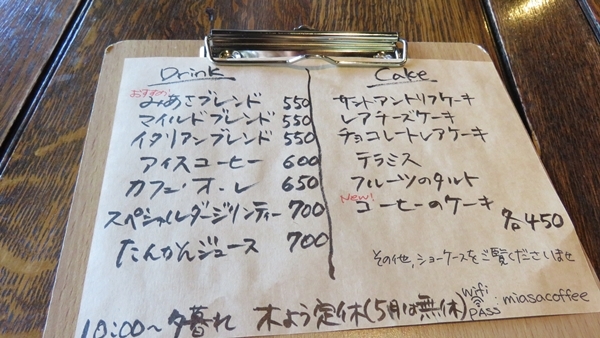 Drink
おすすめ!
みあさブレンド 550
マイルドブレンド 550
イタリアンブレンド 550
アイスコーヒー 600
カフェ・オーレ 650
スペシャルダージリンティー 700
たんかんジュース 700
Cake
サントアントリフケーキ
レアチーズケーキ
チョコレートレアケーキ
テラミス
フルーツのタルト
New!
コーヒーのケーキ
各450
その他,ショーケースをご覧くださいませ
10:00〜夕暮れ 木よう定休(5月は無休)
wifi
PASS: miasacoffee